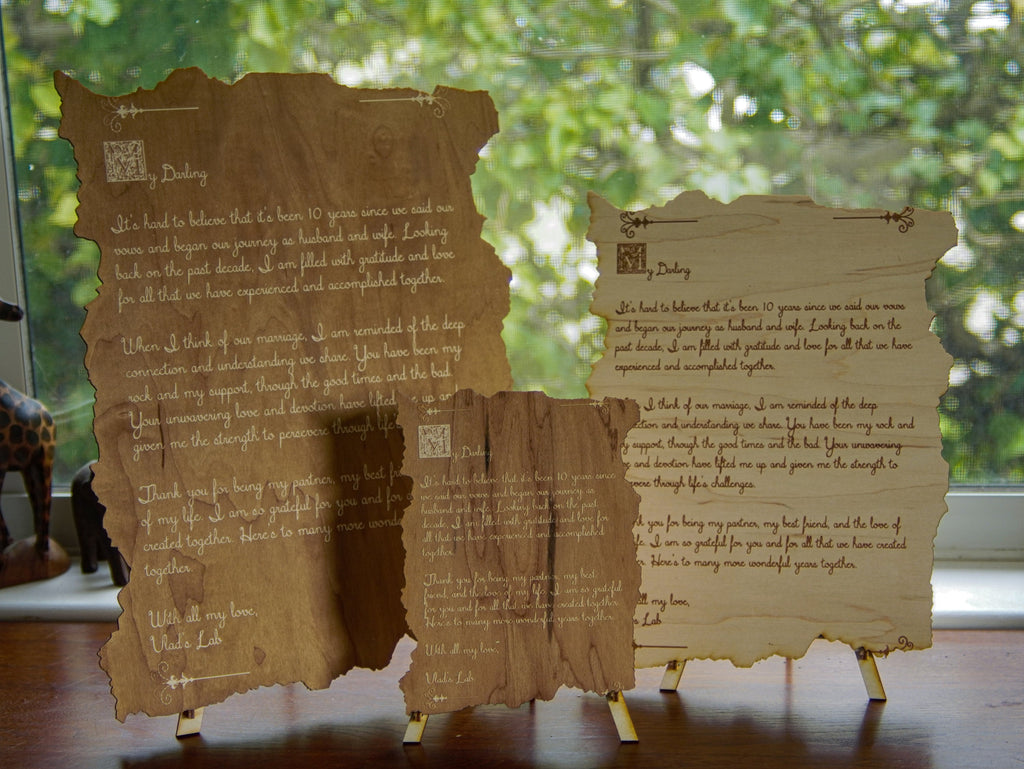 My Darling
It's hard to believe that it's been 10 years since we said our
vows and began our journey as husband and wife. Looking
back on the past decade, I am filled with gratitude and love
for all that we have experienced and accomplished together.
When I think of our marriage, I am reminded of the deep
connection and understanding we share. You have been my
rock and my support, through the good times and the bad.
Your unwavering love and devotion have lifted me up and
given me the strength to persevere through life
Thank you for being my partner, my best fr
of my life. I am so grateful for you and for a
created together. Here's to many more wonde
together.
With all my love,
Vlad's Lab
My Darling
It's hard to believe that it's been 10 years since
we said our vows and began our journey as
husband and wife. Looking back on the past
decade, I am filled with gratitude and love for
all that we have experienced and accomplished
together.
Thank you for being my partner, my best
friend, and the love of my life. I am so grateful
for you and for all that we have created together.
Here's to many more wonderful years together.
With all my love,
Vlad's Lab
My Darling
It's hard to believe that it's been 10 years since we said our vows
and began our journey as husband and wife. Looking back on the
past decade, I am filled with gratitude and love for all that we have
experienced and accomplished together.
I think of our marriage, I am reminded of the deep
ection and understanding we share. You have been my rock and
my support, through the good times and the bad. Your unwavering
e and devotion have lifted me up and given me the strength to
evere through life's challenges.
k you for being my partner, my best friend, and the love of
fe. I am so grateful for you and for all that we have created
r. Here's to many more wonderful years together.
all my love,
s Lab